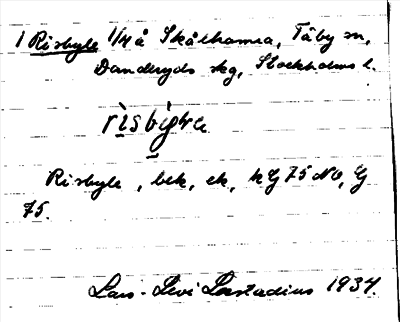 1 Risbyle 1/4 å Skålhamra, Täby sn,
Danderyds skg, Stockholms l.
Risbyle, bek, ek, kg 75 NO, G
75.
Lars-Levi Læstadius 1934.